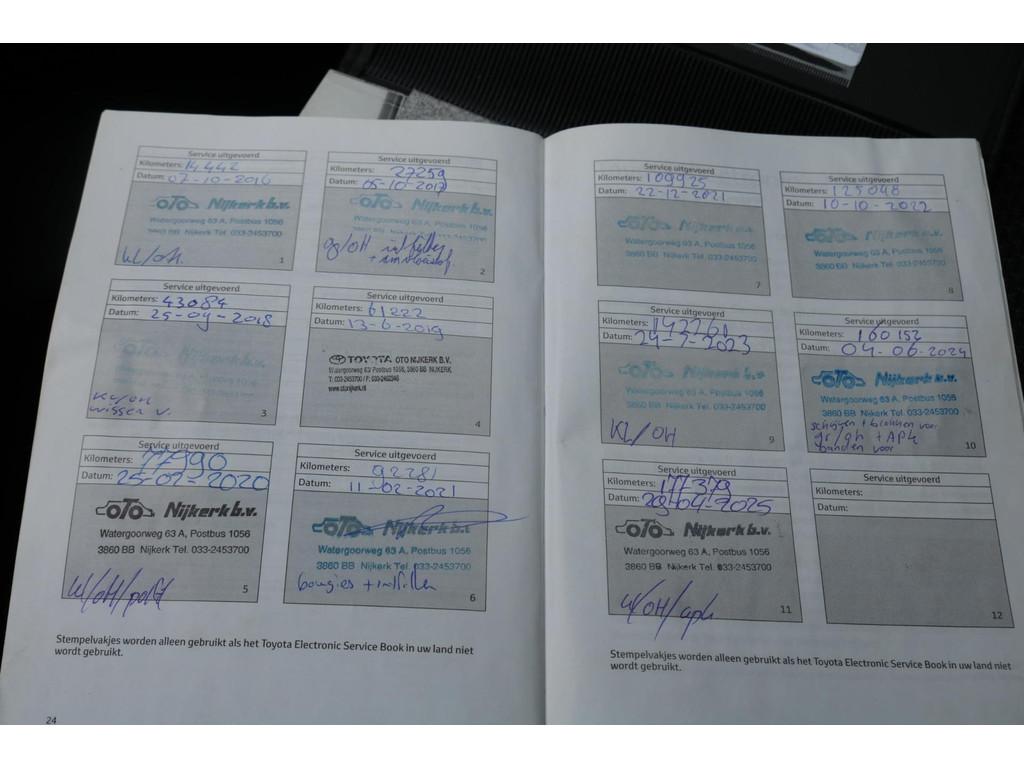 Service uitgevoerd
Kilometers: 14.442
Datum: 07-10-2016
OTO Nijkerk b.v.
Watergoorweg 63 A, Postbus 1056
3860 BB Nijkerk Tel. 033-2453700
KL/OH
1
Service uitgevoerd
Kilometers: 27259
Datum: 05-10-2017
OTO Nijkerk b.v.
Watergoorweg 63 A, Postbus 1056
3860 BB Nijkerk Tel. 033-2453700
gr/OH
2
Service uitgevoerd
Kilometers: 43084
Datum: 25-09-2018
OTO Nijkerk b.v.
Watergoorweg 63 A, Postbus 1056
3860 BB Nijkerk Tel. 033-2453700
KL/OH
wissen v.
3
Service uitgevoerd
Kilometers: 61222
Datum: 13-6-2019
TOYOTA OTO NIJKERK B.V.
Watergoorweg 63, Postbus 1056, 3860 BB NIJKERK
T: 033-2453700 / F:
www.otonijkerk.nl
4
Service uitgevoerd
Kilometers: 77990
Datum: 25-02-2020
OTO Nijkerk b.v.
Watergoorweg 63 A, Postbus 1056
3860 BB Nijkerk Tel. 033-2453700
5
Service uitgevoerd
Kilometers: 92281
Datum: 11-02-2021
OTO Nijkerk b.v.
Watergoorweg 63 A, Postbus 1056
3860 BB Nijkerk Tel. 033-2453700
bougies +
6
Stempelvakjes worden alleen gebruikt als het Toyota Electronic Service Book in uw land niet
wordt gebruikt.
24
Service uitgevoerd
Kilometers: 109925
Datum: 22-12-2021
OTO Nijkerk b.v.
Watergoorweg 63 A, Postbus 1056
3860 BB Nijkerk Tel. 033-2453700
7
Service uitgevoerd
Kilometers: 125048
Datum: 10-10-2022
OTO Nijkerk b.v.
Watergoorweg 63 A, Postbus 1056
3860 BB Nijkerk Tel. 033-2453700
8
Service uitgevoerd
Kilometers:
Datum: 24-7-2023
OTO Nijkerk b.v.
Watergoorweg 63 A, Postbus 1056
3860 BB Nijkerk Tel. 033-2453700
KL/OH
9
Service uitgevoerd
Kilometers: 160 152
Datum: 04-06-2024
OTO Nijkerk b.v.
Watergoorweg 63 A, Postbus 1056
3860 BB Nijkerk Tel. 033-2453700
schijven + blokken voor
gr/oh + APK
banden voor
10
Service uitgevoerd
Kilometers: 177379
Datum: 29-04-2025
OTO Nijkerk b.v.
Watergoorweg 63 A, Postbus 1056
3860 BB Nijkerk Tel. 033-2453700
kl/OH/apk
11
Service uitgevoerd
Kilometers:
Datum:
12
Stempelvakjes worden alleen gebruikt als het Toyota Electronic Service Book in uw land niet
wordt gebruikt.